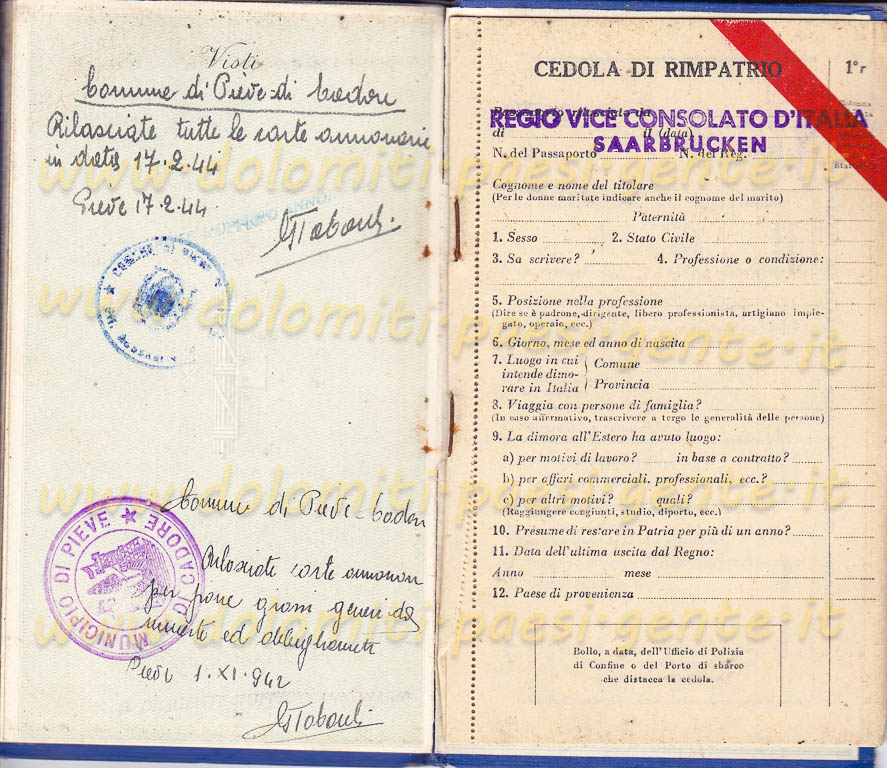 Visti
Comune di Pieve di Cadore
Rilasciate tutte le carte annonarie
in data 17.2.44
Pieve 17.2.44
COMUNE DI PIEVE
www.dolomiti-paesi-gente.it
www.dolomiti-paesi-gente.it
www.dolomiti-paesi-gente.it
www.dolomiti-paesi-gente.it
MUNICIPIO DI PIEVE DI CADORE
Comune di Pieve-Cador
Rilasciate carte annonarie
per pane grassi generi da
minestra ed abbigliamento
Pieve 1.XI.942
CEDOLA DI RIMPATRIO
1° r
Passaporto rilasciato da
REGIO VICE CONSOLATO D'ITALIA
SAARBRUCKEN
di il (data)
N. del Passaporto N. del Reg.
Cognome e nome del titolare
(Per le donne maritate indicare anche il cognome del marito)
Paternità
1. Sesso 2. Stato Civile
3. Sa scrivere? 4. Professione o condizione:
5. Posizione nella professione
(Dire se è padrone, dirigente, libero professionista, artigiano impie-
gato, operaio, ecc.)
6. Giorno, mese ed anno di nascita
7. Luogo in cui intende dimo-rare in Italia { Comune
Provincia
8. Viaggia con persone di famiglia?
(In caso affermativo, trascrivere a tergo le generalità delle persone)
9. La dimora all'Estero ha avuto luogo:
a) per motivi di lavoro? in base a contratto?
b) per affari commerciali, professionali, ecc.?
c) per altri motivi? quali?
(Raggiungere congiunti, studio, diporto, ecc.)
10. Presume di restare in Patria per più di un anno?
11. Data dell'ultima uscita dal Regno:
Anno mese
12. Paese di provenienza
Bollo, a data, dell'Ufficio di Polizia
di Confine o del Porto di sbarco
che distacca la cedola.